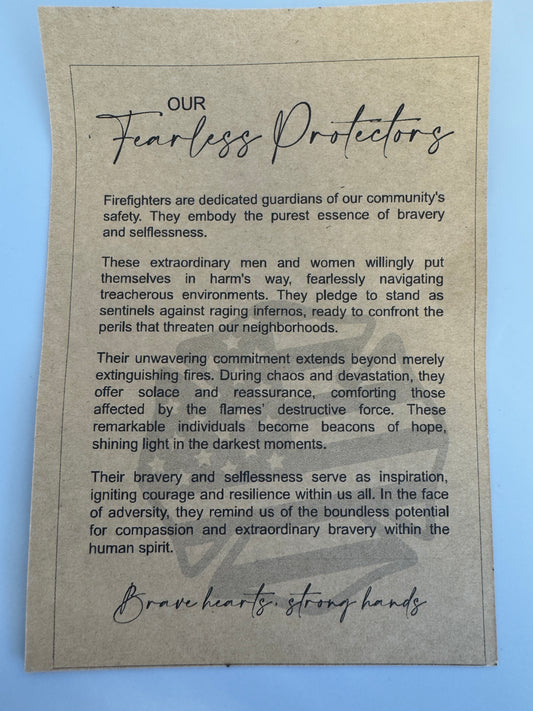 OUR
Fearless Protectors
Firefighters are dedicated guardians of our community's
safety. They embody the purest essence of bravery
and selflessness.
These extraordinary men and women willingly put
themselves in harm's way, fearlessly navigating
treacherous environments. They pledge to stand as
sentinels against raging infernos, ready to confront the
perils that threaten our neighborhoods.
Their unwavering commitment extends beyond merely
extinguishing fires. During chaos and devastation, they
offer solace and reassurance, comforting those
affected by the flames' destructive force. These
remarkable individuals become beacons of hope,
shining light in the darkest moments.
Their bravery and selflessness serve as inspiration,
igniting courage and resilience within us all. In the face
of adversity, they remind us of the boundless potential
for compassion and extraordinary bravery within the
human spirit.
Brave hearts, strong hands